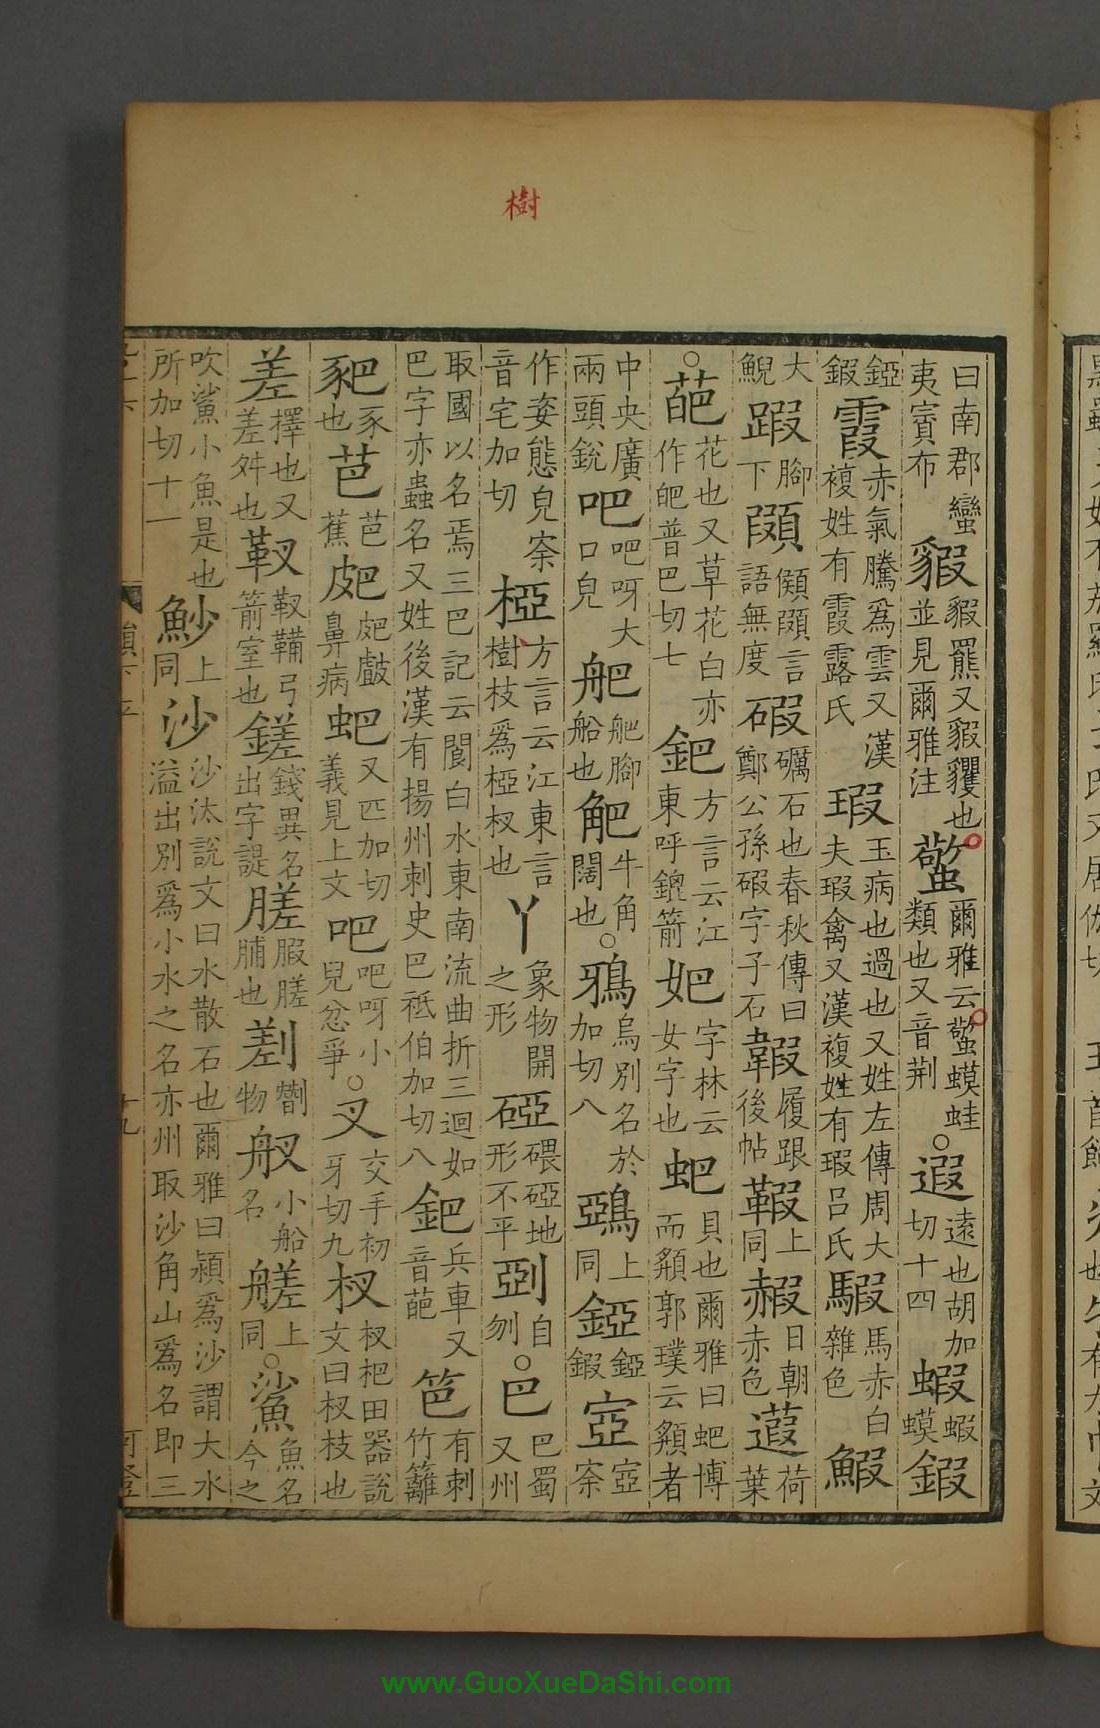 樹
日南郡蠻夷賓布貑貑羆又貑貜也並見爾雅注蟼爾雅云蟼蟆蛙類也又音荆○遐遠也胡加切十四蝦蝦蟆鍜
錏鍜霞赤氣騰爲雲又漢複姓有霞露氏瑕玉病也過也又姓左傳周大夫瑕禽又漢複姓有瑕呂氏騢馬赤白雜色鰕
大鯢踀腳下㗇𩔘㗇言語無度碬礪石也春秋傳曰鄭公孫碬字子石䪗履跟後帖𩋥上同赮日朝赤色葭荷葉
○葩花也又草花白亦作皅普巴切七鈀方言云江東呼鎞箭妑字林云女字也蚆貝也爾雅曰蚆博而頯郭璞云頯者
中央廣兩頭銳吧吧呀大口皃舥舥腳船也䶕牛角闊也○鴉烏別名於加切八鵶上同錏錏鍜窫窫㝞
作姿態皃㝞音宅加切椏方言云江東言樹枝爲椏杈也丫象物開之形砑碨砑地形不平剄自刎○巴巴蜀又州
取國以名焉三巴記云閬白水東南流曲折三迴如巴字亦蟲名又姓後漢有揚州刺史巴祗伯加切八鈀兵車又音葩笆有刺竹籬
豝豕也芭芭蕉皅皅皻鼻病蚆又匹加切義見上文吧吧呀小兒忿爭○叉交手初牙切九杈杈杷田器說文曰杈枝也
差擇也又差舛也靫靫鞴弓箭室也鎈錢異名出字諟䐤腶䐤脯也剗䶛物舣小船名艖上同○鯊魚名今之
吹鯊小魚是也所加切十一魦上同沙沙汰說文曰水散石也爾雅曰潁爲沙謂大水溢出別爲小水之名亦州取沙角山爲名即三
韻下平
十九
www.GuoXueDaShi.com